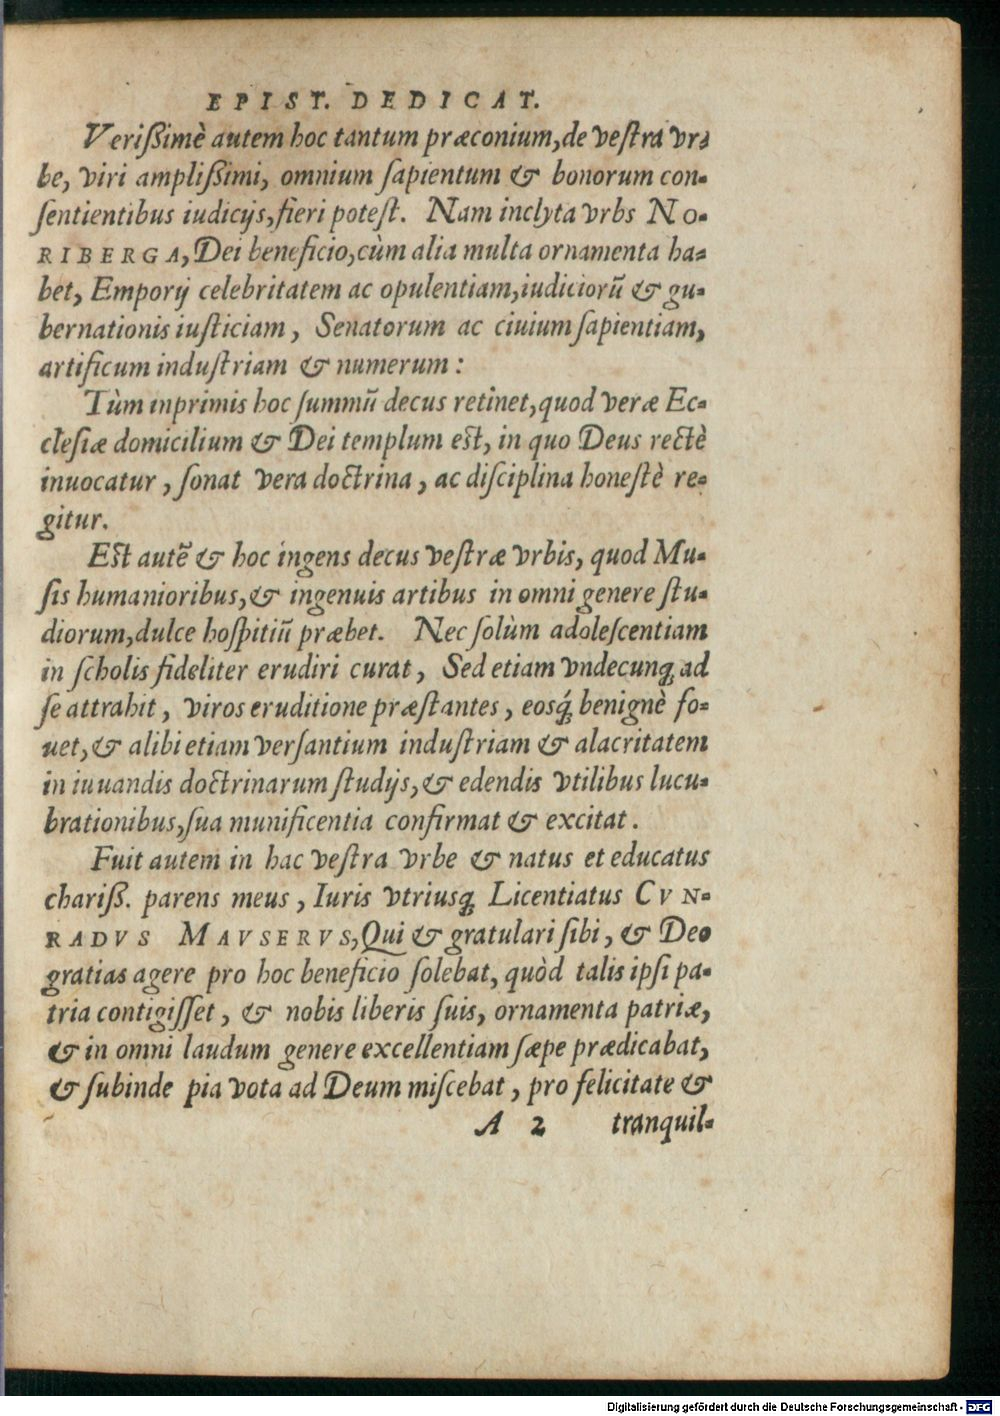 EPIST. DEDICAT.
Verißimè autem hoc tantum præconium, de veſtra vr-
be, viri amplißimi, omnium ſapientum & bonorum con-
ſentientibus iudicijs, fieri poteſt. Nam inclyta vrbs NO-
RIBERGA, Dei beneficio, cùm alia multa ornamenta ha-
bet, Emporij celebritatem ac opulentiam, iudiciorũ & gu-
bernationis iuſticiam, Senatorum ac ciuium ſapientiam,
artificum induſtriam & numerum:
Tùm inprimis hoc ſummũ decus retinet, quod veræ Ec-
cleſiæ domicilium & Dei templum eſt, in quo Deus rectè
inuocatur, ſonat vera doctrina, ac diſciplina honeſtè re-
gitur.
Eſt autẽ & hoc ingens decus veſtræ vrbis, quod Mu-
ſis humanioribus, & ingenuis artibus in omni genere ſtu-
diorum, dulce hoſpitiũ præbet. Nec ſolùm adoleſcentiam
in ſcholis fideliter erudiri curat, Sed etiam vndecunq́; ad
ſe attrahit, viros eruditione præſtantes, eosq́; benignè fo-
uet, & alibi etiam verſantium induſtriam & alacritatem
in iuuandis doctrinarum ſtudijs, & edendis vtilibus lucu-
brationibus, ſua munificentia confirmat & excitat.
Fuit autem in hac veſtra vrbe & natus et educatus
chariß. parens meus, Iuris vtriusq; Licentiatus CVN-
RADVS MAVSERVS, Qui & gratulari ſibi, & Deo
gratias agere pro hoc beneficio ſolebat, quòd talis ipſi pa-
tria contigiſſet, & nobis liberis ſuis, ornamenta patriæ,
& in omni laudum genere excellentiam ſæpe prædicabat,
& ſubinde pia vota ad Deum miſcebat, pro felicitate &
A 2 tranquil-
Digitalisierung gefördert durch die Deutsche Forschungsgemeinschaft - DFG